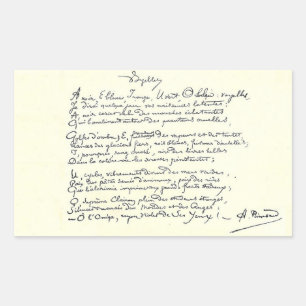 Voyelles
A noir, E blanc, I rouge, U vert, O bleu : voyelles,
Je dirai quelque jour vos naissances latentes :
A, noir corset velu des mouches éclatantes
Qui bombinent autour des puanteurs cruelles,
Golfes d'ombre ; E, des vapeurs et des tentes,
Lances des glaciers fiers, rois blancs, frissons d'ombelles ;
I, pourpres, sang craché, rire des lèvres belles
Dans la colère ou les ivresses pénitentes ;
U, cycles, vibrements divins des mers virides,
Paix des pâtis semés d'animaux, paix des rides
Que l'alchimie imprime aux grands fronts studieux ;
O, suprême Clairon plein des strideurs étranges,
Silences traversés des Mondes et des Anges :
— O l'Oméga, rayon violet de Ses Yeux ! — A Rimbaud